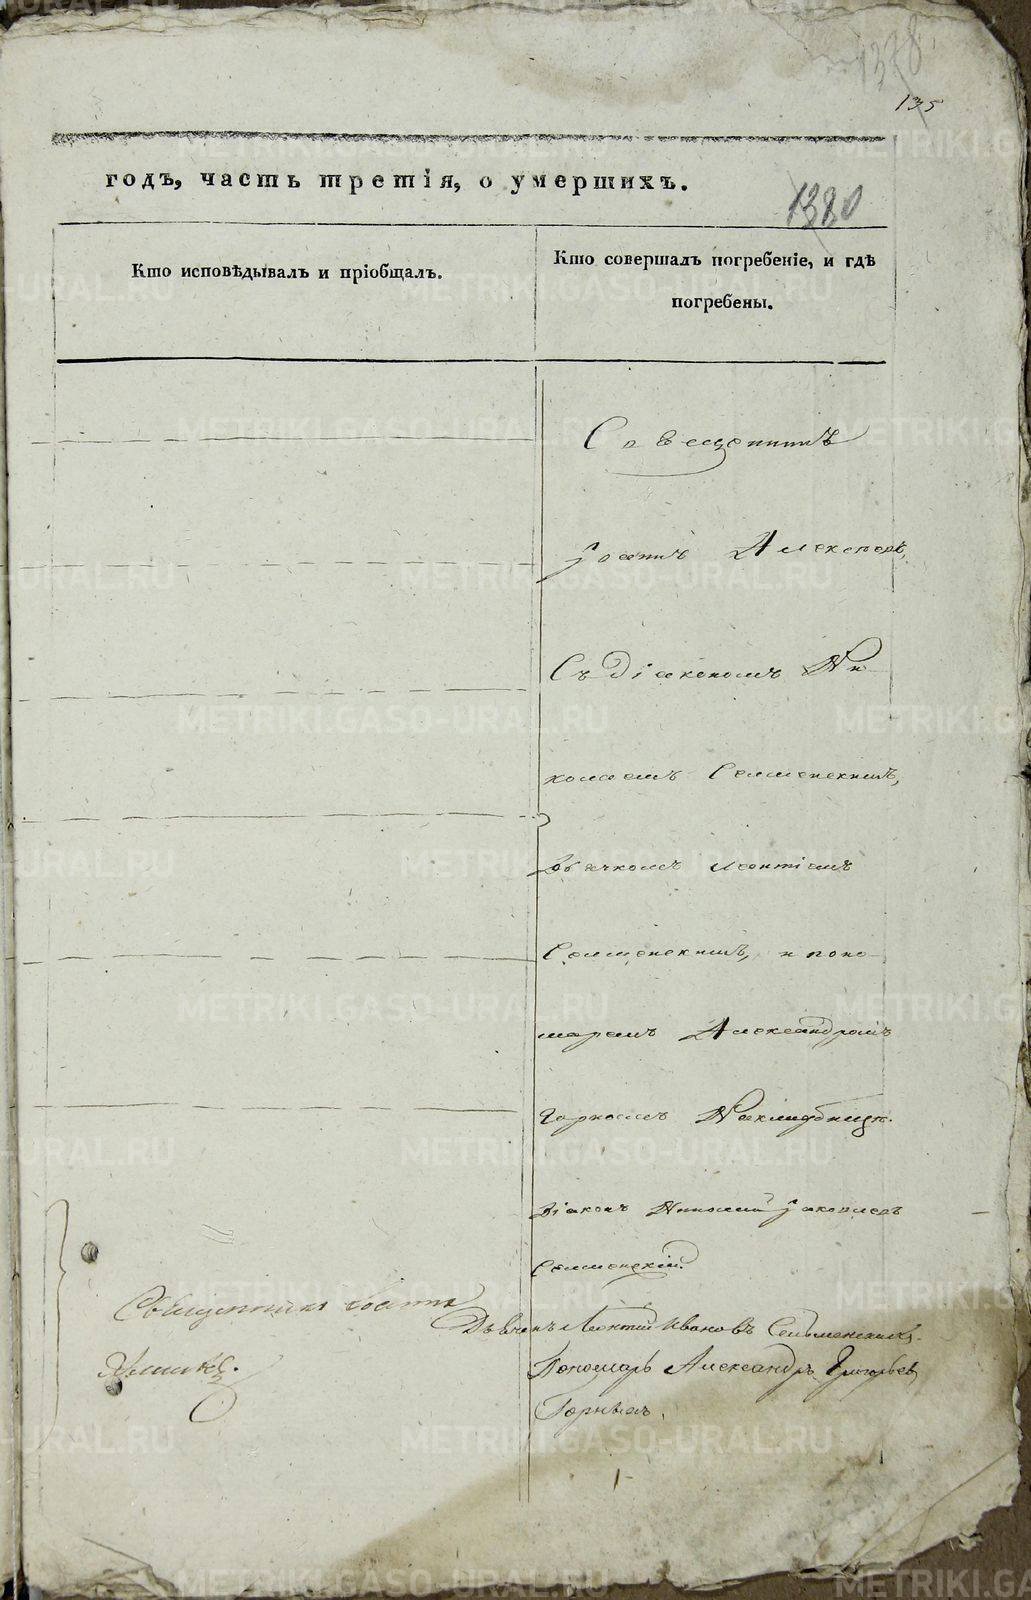 1378
135
годъ, часть третія, о умершихъ.
1380
Кто исповѣдывалъ и пріобщалъ.
Кто совершалъ погребеніе, и гдѣ
погребены.
Священникъ
Іоаннъ
Съ діакономъ Ни
колаемъ Селменскимъ,
дьячкомъ Леонтіемъ
Селменскимъ, и поно
маремъ Александромъ
Горнымъ
діаконъ Николай Іаковлевъ
Селменскій
Священникъ Іоаннъ
Дьячекъ Леонтій Ивановъ Сельменскихъ.
Пономарь Александръ Григорьевъ
Горныхъ.
METRIKI.GASO-URAL.RU